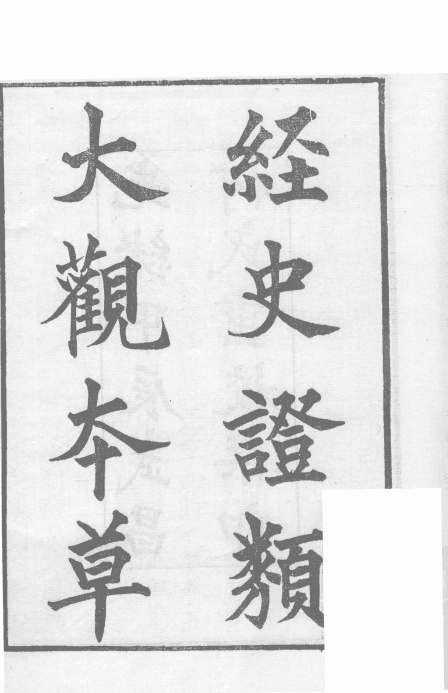 経史證類
大觀夲草